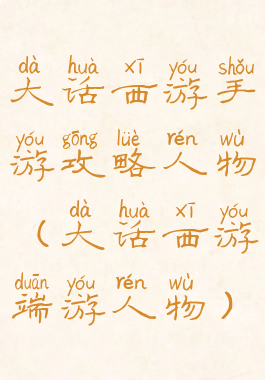 dà huà xī yóu shǒu
大话西游手
yóu gōng lüè rén wù
游攻略人物
dà huà xī yóu
（大话西游
duān yóu rén wù
端游人物）